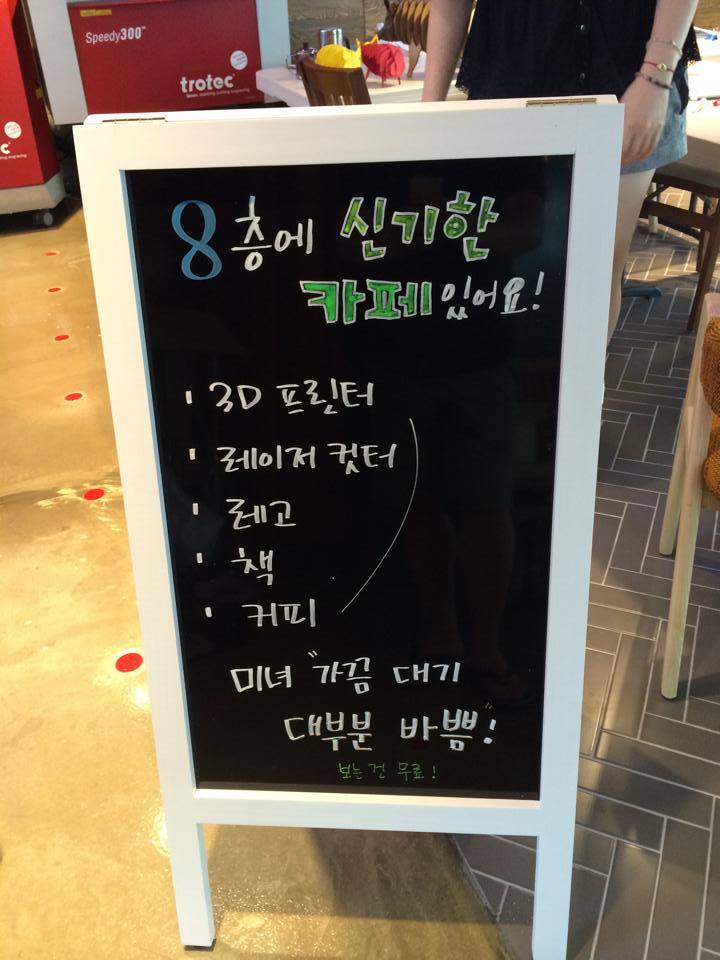 Speedy300™
trotec
laser. marking cutting engraving
8층에 신기한
카페있어요!
· 3D 프린터
· 레이저 컷터
· 레고
· 책
· 커피
미녀 "가끔 대기
대부분 바쁨"!
보는건 무료!